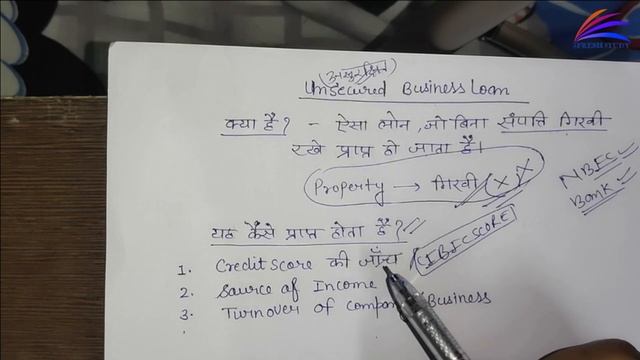 FRESH STUDY
(असुरक्षित)
Unsecured Business Loan
क्या है? - ऐसा लोन, जो बिना संपत्ति गिरवी
रखे प्राप्त हो जाता है।
Property → गिरवी (×)
NBFC ✓
Bank ✓
यह कैसे प्राप्त होता है?
1. Credit Score की जाँच (CIBIL SCORE)
2. Source of Income
3. Turnover of Business